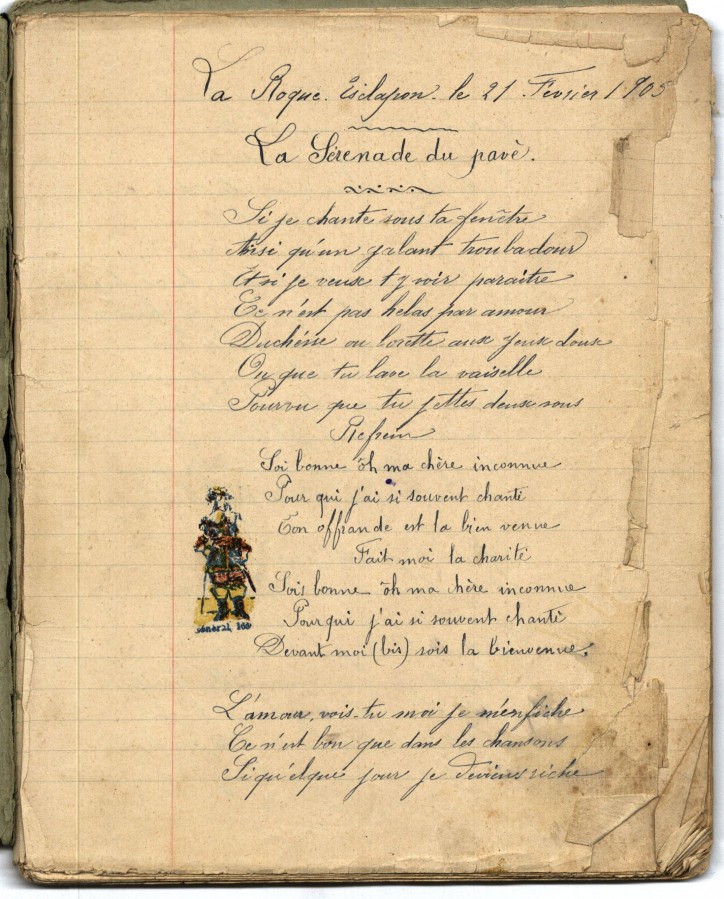 La Roque-Esclapon. le 21 Février 1905
La Sérenade du pavè.
Si je chante sous ta fenêtre
Ainsi qu'un galant troubadour
Et si je veux t'y voir paraitre
Ce n'est pas helas par amour
Duchésse ou lorette aux yeux doux
Ou que tu lave la vaiselle
Pourvu que tu jettes deux sous
Refrein
Soi bonne ôh ma chère inconnue
Pour qui j'ai si souvent chanté
Ton offrande est la bien venue
Fait moi la charité
Sois bonne ôh ma chère inconnue
Pour qui j'ai si souvent chanté
Devant moi (bis) sois la bienvenue.
Général, 160
L'amour, vois-tu moi je m'en fiche
Ce n'est bon que dans les chansons
Si quélque jour je deviens riche